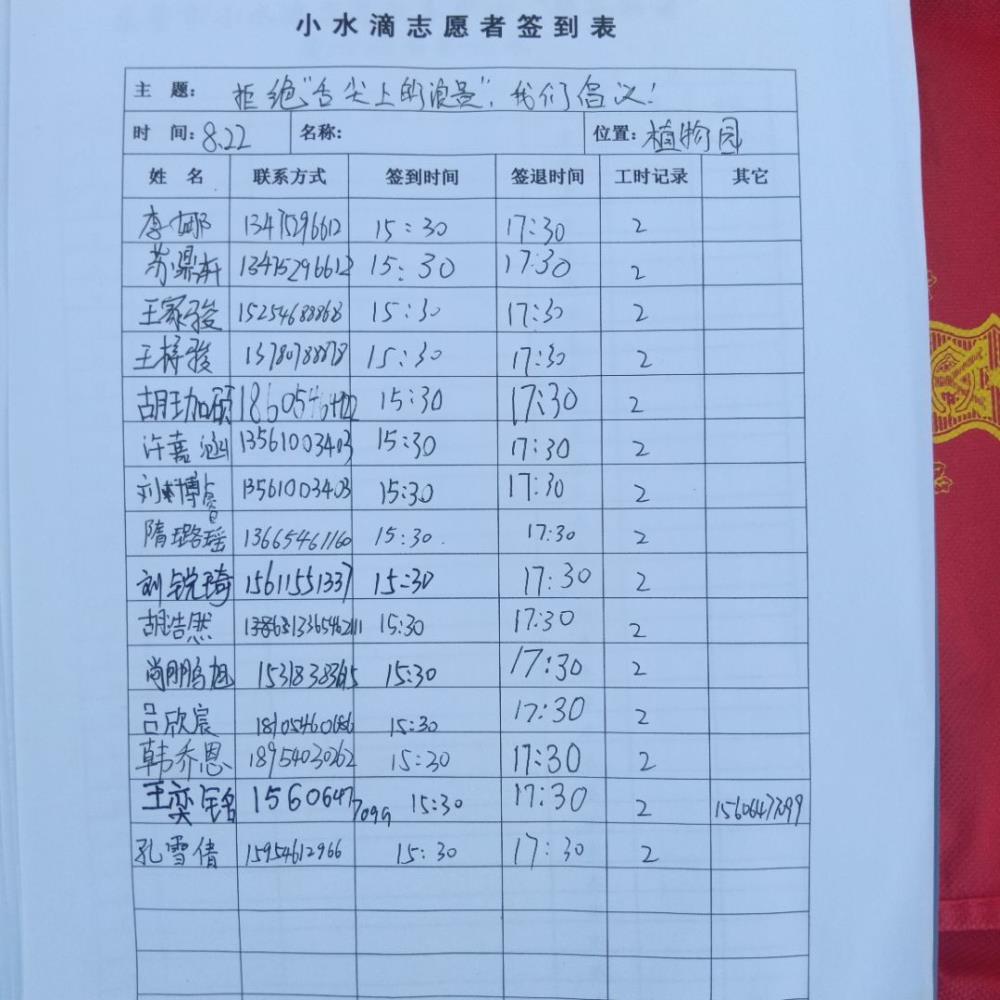 小水滴志愿者签到表
主 题: 拒绝"舌尖上的浪费",我们倡议!
时 间: 8.22 名称: 位置: 植物园
姓 名 联系方式 签到时间 签退时间 工时记录 其它
李娜 13475296612 15:30 17:30 2
苏鼎轩 13475296612 15:30 17:30 2
王家骏 15254688868 15:30 17:30 2
王梓骏 13780788878 15:30 17:30 2
胡珈硕 15:30 17:30 2
许嘉涵 13561003403 15:30 17:30 2
刘树博睿 13561003403 15:30 17:30 2
隋璐瑶 13665461160 15:30 17:30 2
刘锐琦 15611551337 15:30 17:30 2
胡浩然 15:30 17:30 2
尚鹏旭 15:30 17:30 2
吕欣宸 18905460686 15:30 17:30 2
韩乔恩 18954030262 15:30 17:30 2
王奕铭 15606477099 15:30 17:30 2 15606477099
孔雪倩 15954612966 15:30 17:30 2